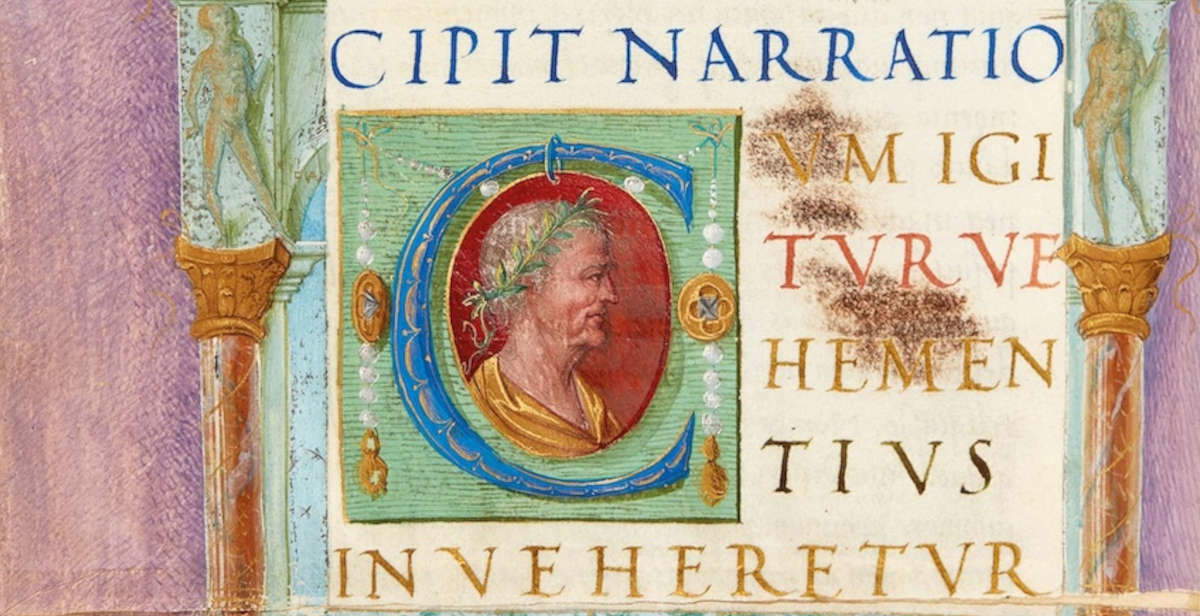 CIPIT NARRATIO
CVM IGI
TVR VE
HEMEN
TIVS
INVEHERETVR